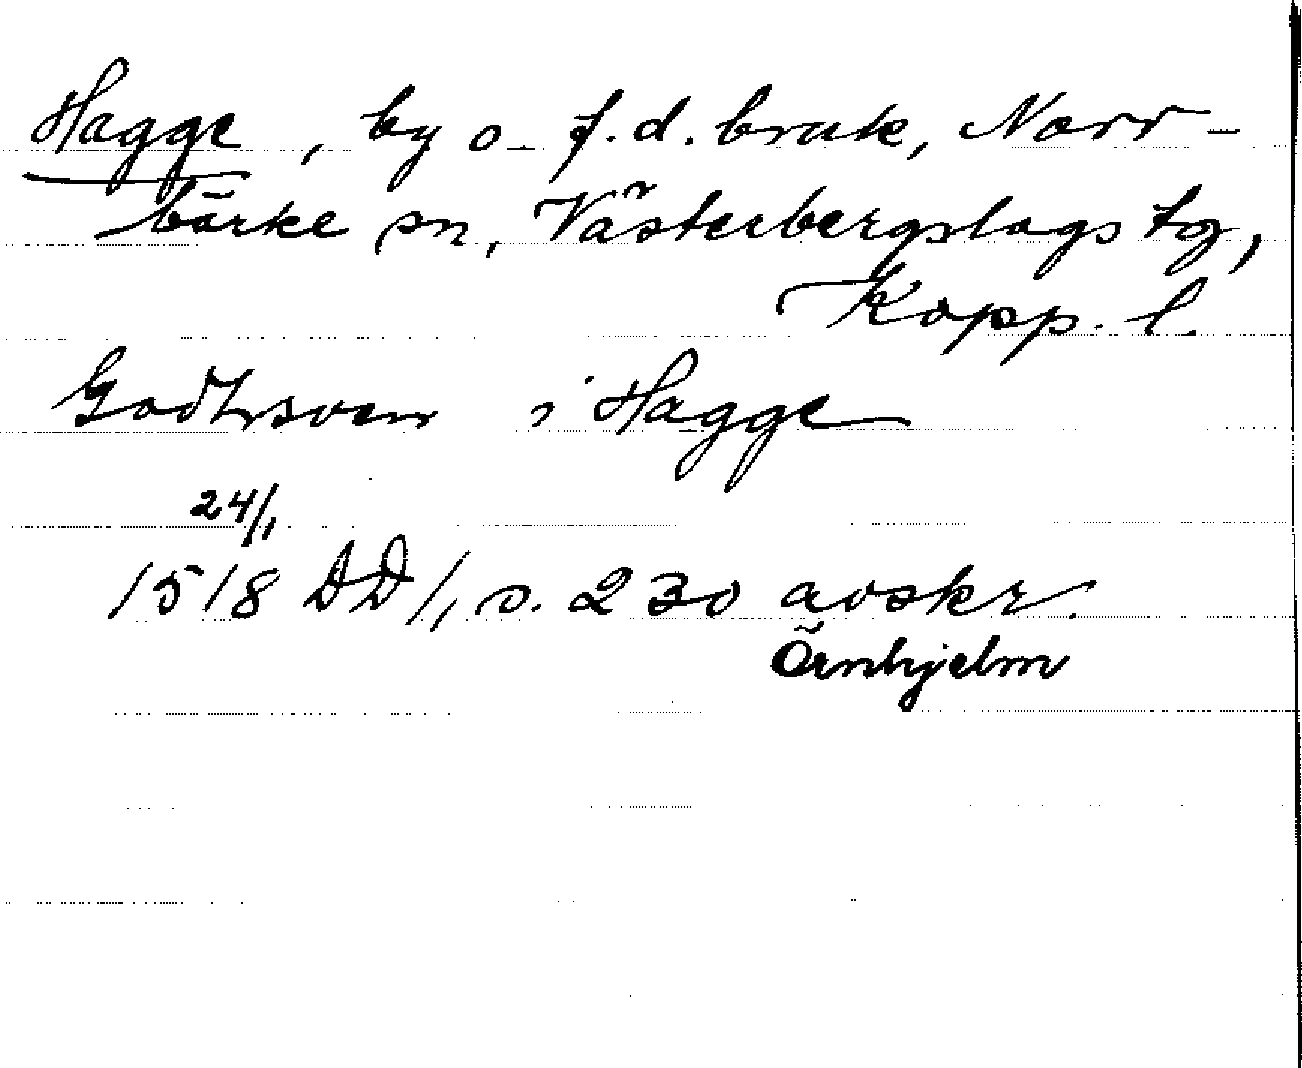 Hagge, by o. f.d. bruk, Norr-
bärke sn, Västerbergslags tg,
Kopp. l.
i Hagge
24/1
1518 DD/1, s. 230 avskr.
Örnhjelm